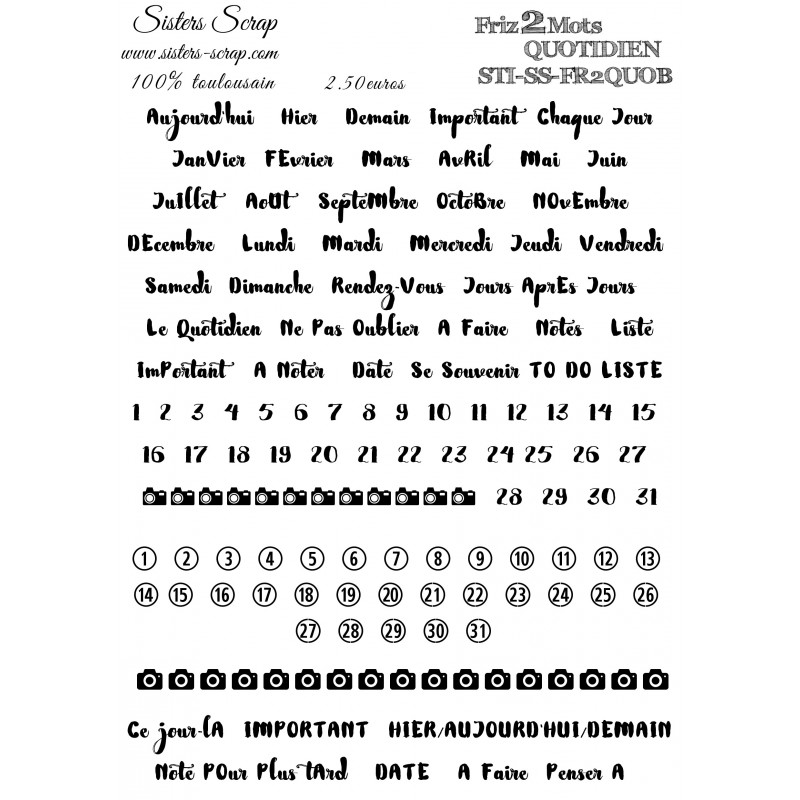 Sisters Scrap
www.sisters-scrap.com
100% toulousain 2.50euros
Friz2Mots
QUOTIDIEN
STI-SS-FR2QUOB
Aujourd'hui Hier Demain Important Chaque Jour
JanVier FEvrier Mars AvRil Mai Juin
JuIllet AoUt SepteMbre OctoBre NOvEmbre
DEcembre Lundi Mardi Mercredi Jeudi Vendredi
Samedi Dimanche Rendez-Vous Jours AprEs Jours
Le Quotidien Ne Pas Oublier A Faire Notes Liste
ImPortant A Noter Date Se Souvenir TO DO LISTE
1 2 3 4 5 6 7 8 9 10 11 12 13 14 15
16 17 18 19 20 21 22 23 24 25 26 27
28 29 30 31
1 2 3 4 5 6 7 8 9 10 11 12 13
14 15 16 17 18 19 20 21 22 23 24 25 26
27 28 29 30 31
Ce jour-lA IMPORTANT HIER/AUJOURD'HUI/DEMAIN
Note POur Plus tArd DATE A Faire Penser A